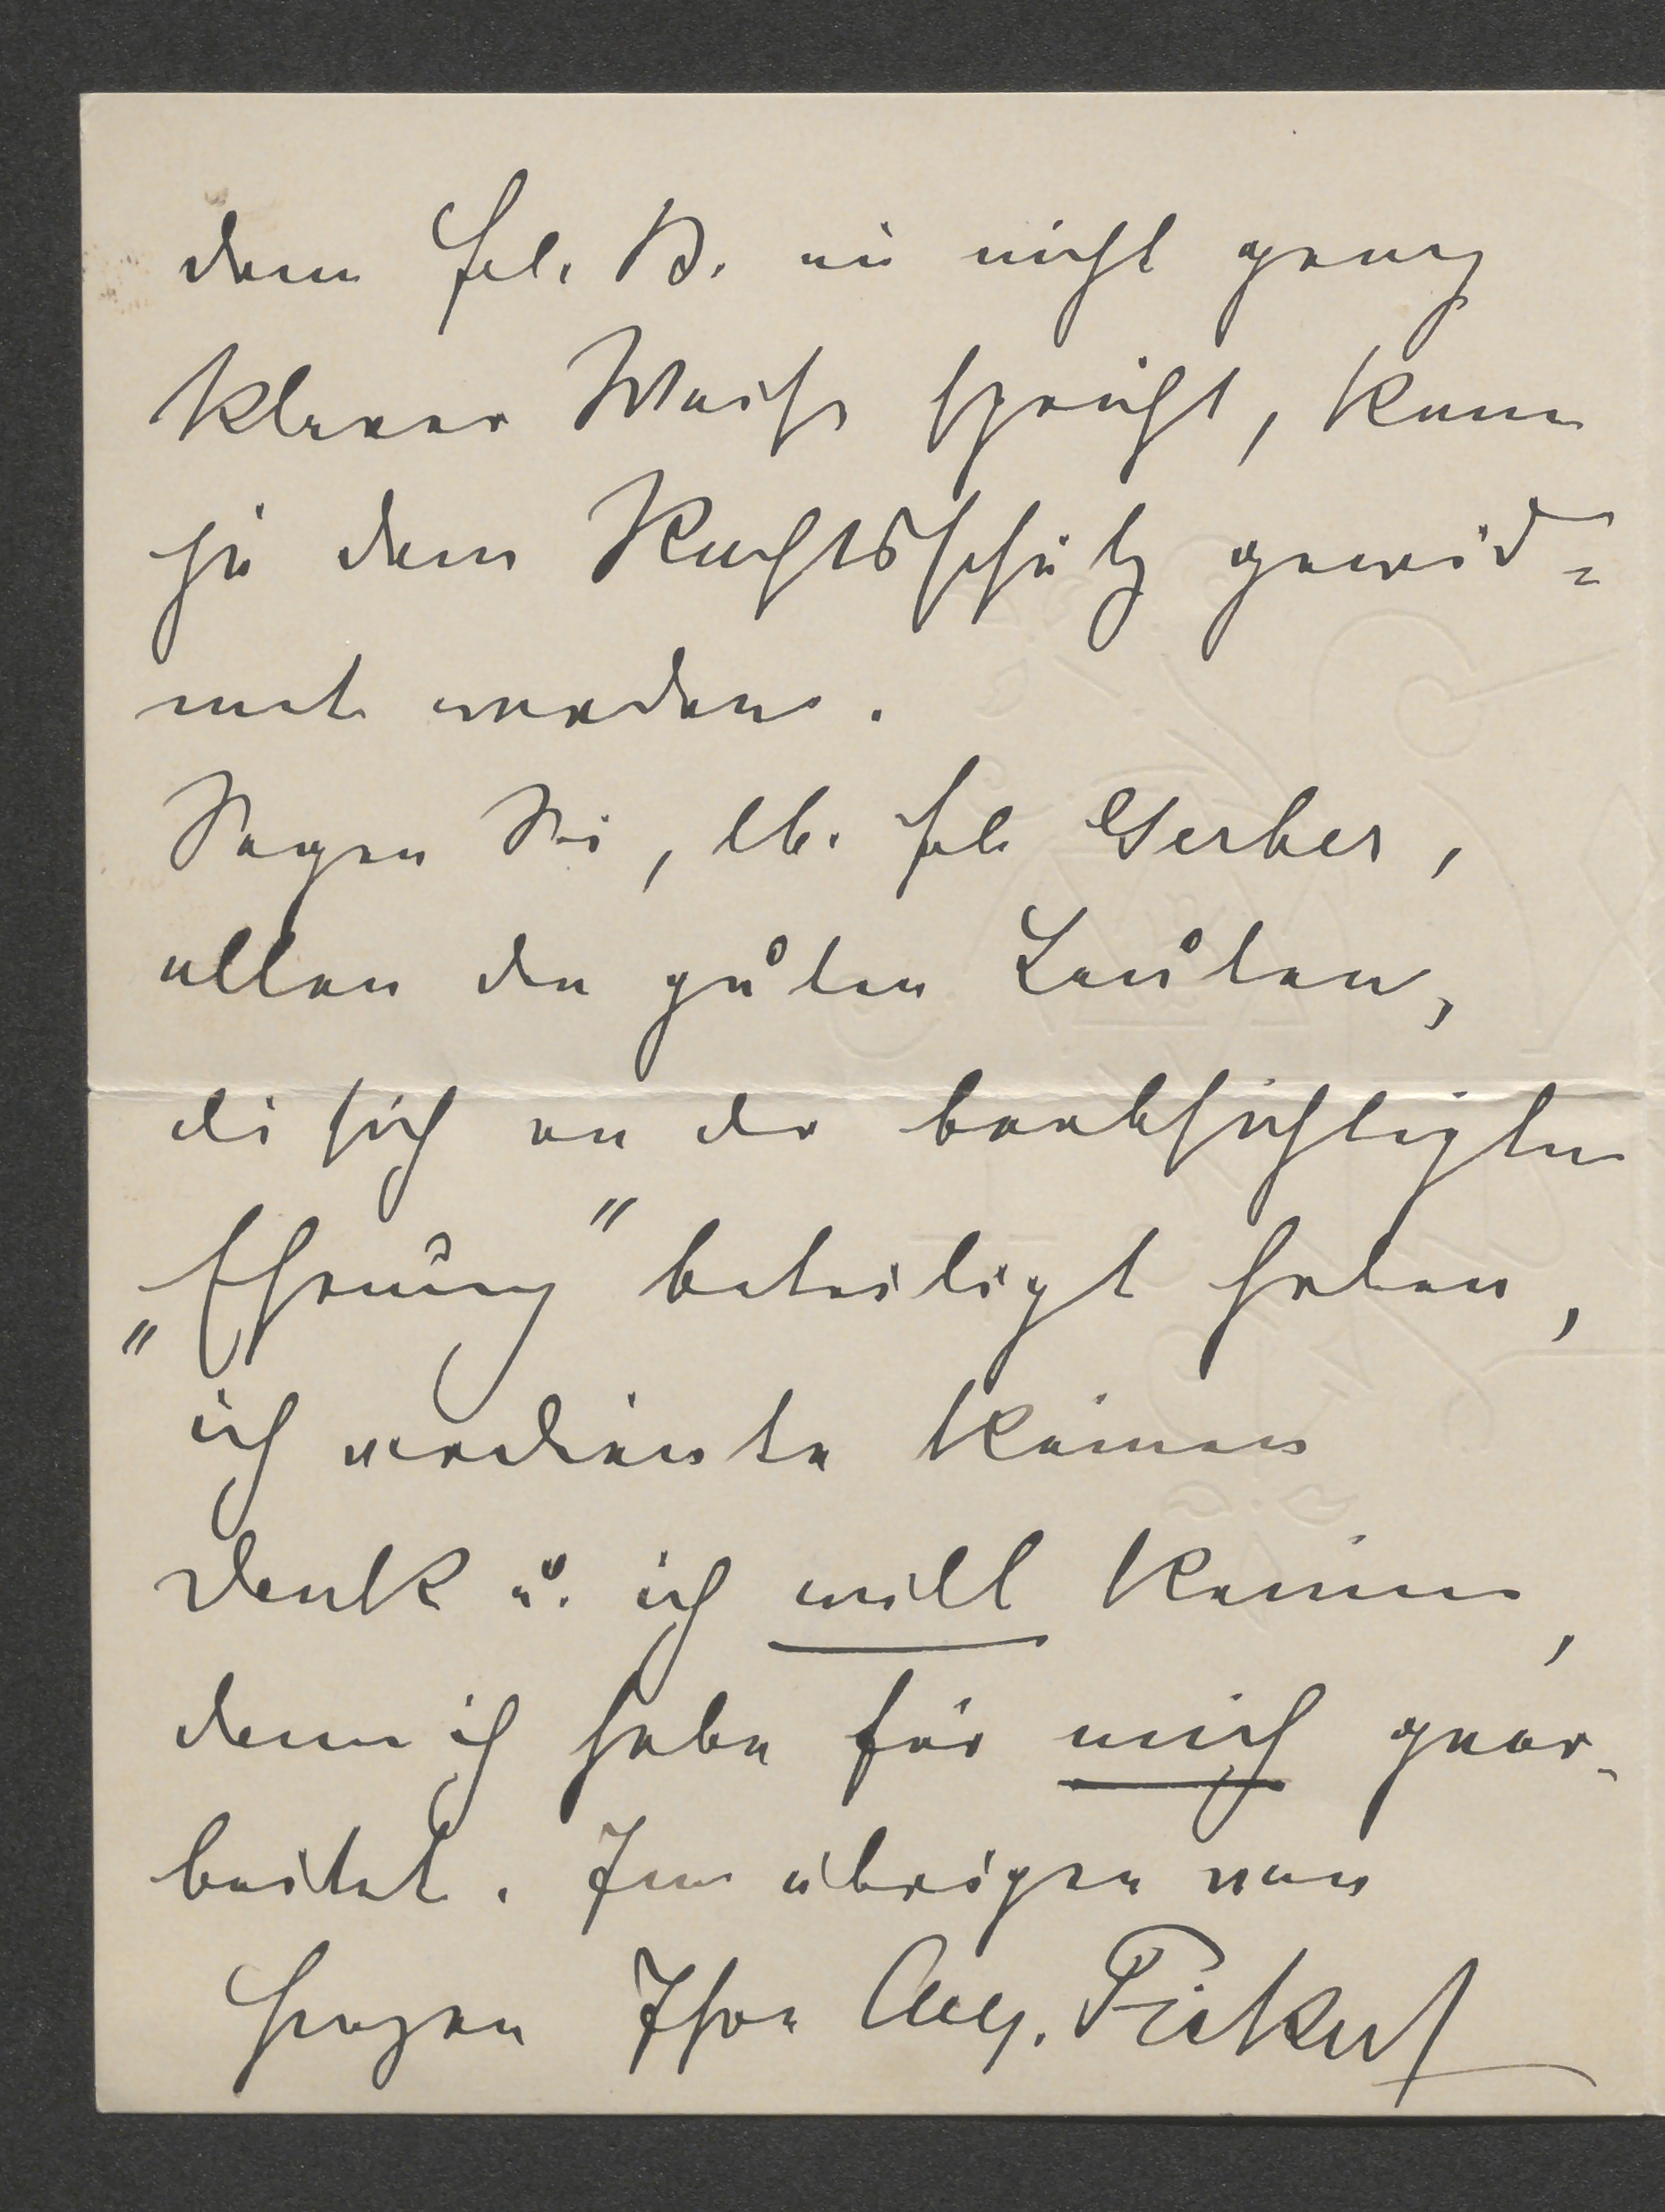 dem Frl. B. in nicht ganz
klarer Weise spricht, kann
ja dem Rechtsschutz gewid=
met werden.
Sagen Sie, lb. Frl. Gerber,
allen den guten Leuten,
die sich an der beabsichtigten
„Ehrung" beteiligt haben,
ich verdiente keinen
Dank u. ich will keinen,
denn ich habe für mich gear-
beitet. Im übrigen von
Herzen Ihre Aug. Fickert